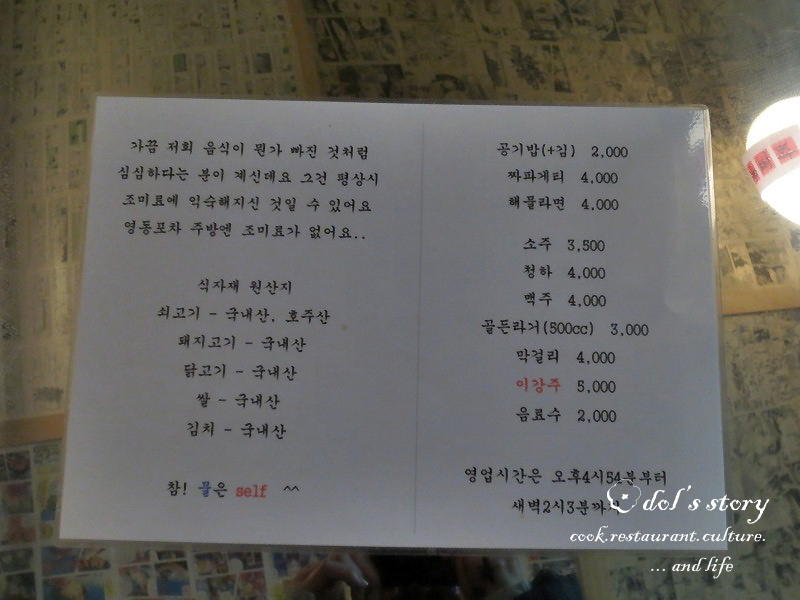 가끔 저희 음식이 뭔가 빠진 것처럼
심심하다는 분이 계신데요 그건 평상시
조미료에 익숙해지신 것일 수 있어요
영동포차 주방엔 조미료가 없어요..
식자재 원산지
쇠고기 - 국내산, 호주산
돼지고기 - 국내산
닭고기 - 국내산
쌀 - 국내산
김치 - 국내산
참! 물은 self ^^
공기밥(+김) 2,000
짜파게티 4,000
해물라면 4,000
소주 3,500
청하 4,000
맥주 4,000
골든라거(500cc) 3,000
막걸리 4,000
이강주 5,000
음료수 2,000
영업시간은 오후4시54분부터
새벽2시3분까지
dol's story
cook.restaurant.culture.
... and life